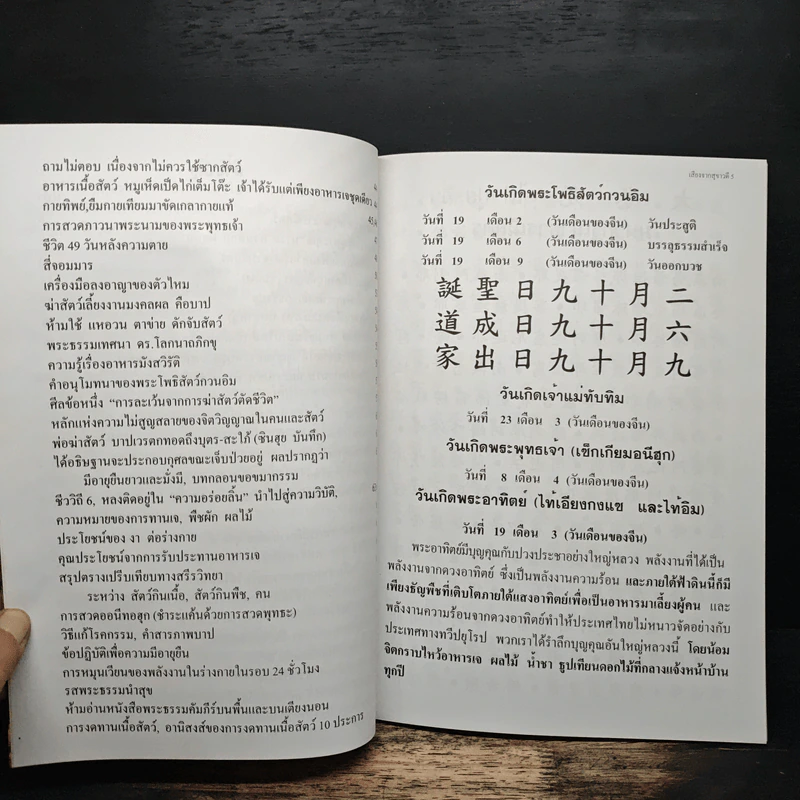 ถามไม่ตอบ เนื่องจากไม่ควรใช้ซากสัตว์
อาหารเนื้อสัตว์ หมูเห็ดเป็ดไก่เต็มโต๊ะ เจ้าได้รับแต่เพียงอาหารเจชุดเดียว
กายทิพย์,ยืมกายเทียมมาขัดเกลากายแท้
การสวดภาวนาพระนามของพระพุทธเจ้า
ชีวิต 49 วันหลังความตาย
สี่จอมมาร
เครื่องมือลงอาญาของตัวไหม
ฆ่าสัตว์เลี้ยงงานมงคลผล คือบาป
ห้ามใช้ แหอวน ตาข่าย ดักจับสัตว์
พระธรรมเทศนา ดร.โลกนาถภิกขุ
ความรู้เรื่องอาหารมังสวิรัติ
คำอนุโมทนาของพระโพธิสัตว์กวนอิม
ศีลข้อหนึ่ง “การละเว้นจากการฆ่าสัตว์ตัดชีวิต”
หลักแห่งความไม่สูญสลายของจิตวิญญาณในคนและสัตว์
พ่อฆ่าสัตว์ บาปเวรตกทอดถึงบุตร-สะใภ้ (ซินสุย บันทึก)
ได้อธิษฐานจะประกอบกุศลขณะเจ็บป่วยอยู่ ผลปรากฏว่า
มีอายุยืนยาวและมั่งมี, บทกลอนขอขมากรรม
ชีววิถี 6, หลงติดอยู่ใน “ความอร่อยลิ้น” นำไปสู่ความวิบัติ,
ความหมายของการทานเจ, พืชผัก ผลไม้
ประโยชน์ของ งา ต่อร่างกาย
คุณประโยชน์จากการรับประทานอาหารเจ
สรุปตรางเปรีบเทียบทางสรีรวิทยา
ระหว่าง สัตว์กินเนื้อ, สัตว์กินพืช, คน
การสวดออนีทอฮุก (ชำระแค้นด้วยการสวดพุทธะ)
วิธีแก้โรคกรรม, คำสารภาพบาป
ข้อปฏิบัติเพื่อความมีอายุยืน
การหมุนเวียนของพลังงานในร่างกายในรอบ 24 ชั่วโมง
รสพระธรรมนำสุข
ห้ามอ่านหนังสือพระธรรมคัมภีร์บนพื้นและบนเตียงนอน
การงดทานเนื้อสัตว์, อานิสงส์ของการงดทานเนื้อสัตว์ 10 ประการ
เสียงจากสุขาวดี 5
วันเกิดพระโพธิสัตว์กวนอิม
วันที่ 19 เดือน 2 (วันเดือนของจีน) วันประสูติ
วันที่ 19 เดือน 6 (วันเดือนของจีน) บรรลุธรรมสำเร็จ
วันที่ 19 เดือน 9 (วันเดือนของจีน) วันออกบวช
誕聖日九十月二
道成日九十月六
家出日九十月九
วันเกิดเจ้าแม่ทับทิม
วันที่ 23 เดือน 3 (วันเดือนของจีน)
วันเกิดพระพุทธเจ้า (เซ็กเกียมอนีฮุก)
วันที่ 8 เดือน 4 (วันเดือนของจีน)
วันเกิดพระอาทิตย์ (ไท้เอียงกงแซ และไท้อิม)
วันที่ 19 เดือน 3 (วันเดือนของจีน)
พระอาทิตย์มีบุญคุณกับปวงประชาอย่างใหญ่หลวง พลังงานที่ได้เป็น
พลังงานจากดวงอาทิตย์ ซึ่งเป็นพลังงานความร้อน และภายใต้ฟ้าดินนี้ก็มี
เพียงธัญพืชที่เติบโตภายใต้แสงอาทิตย์เพื่อเป็นอาหารมาเลี้ยงผู้คน และ
พลังงานความร้อนจากดวงอาทิตย์ทำให้ประเทศไทยไม่หนาวจัดอย่างกับ
ประเทศทางทวีปยุโรป พวกเราได้รำลึกบุญคุณอันใหญ่หลวงนี้ โดยน้อม
จิตกราบไหว้อาหารเจ ผลไม้ น้ำชา ธูปเทียนดอกไม้ที่กลางแจ้งหน้าบ้าน
ทุกปี